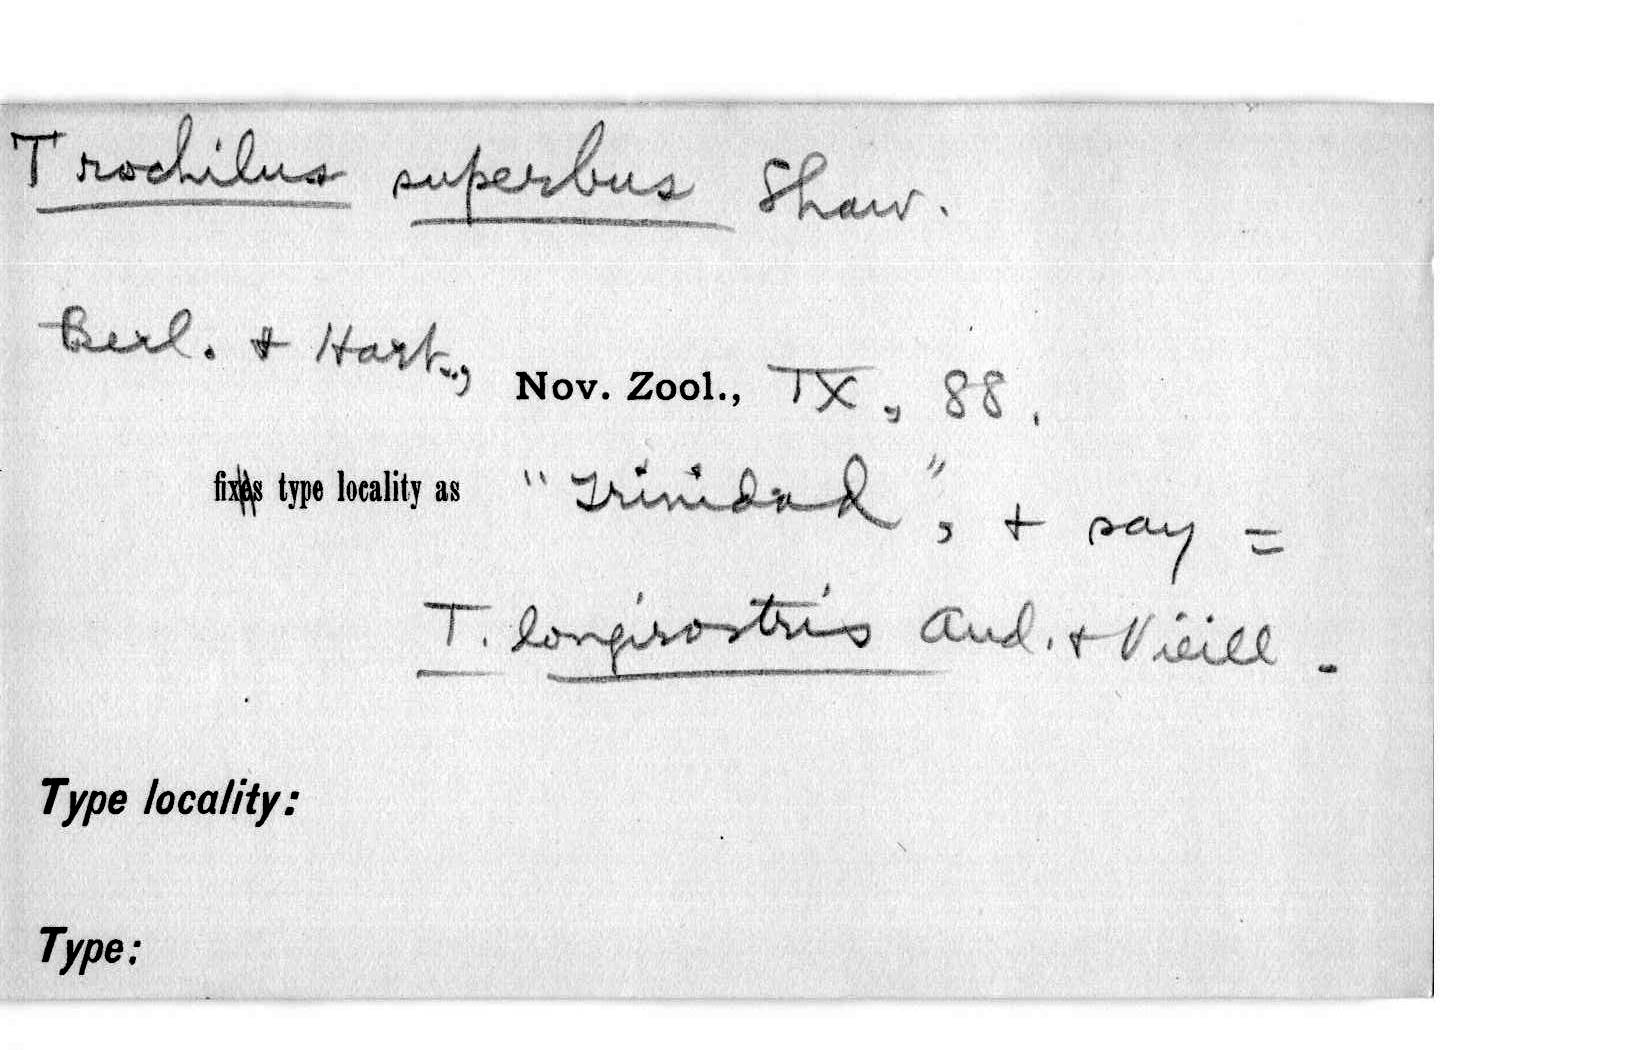 Trochilus superbus Shaw.
Berl. + Hart., Nov. Zool., IX, 88.
fixes type locality as "Trinidad", + say =
T. longirostris Aud. + Vieill.
Type locality:
Type: